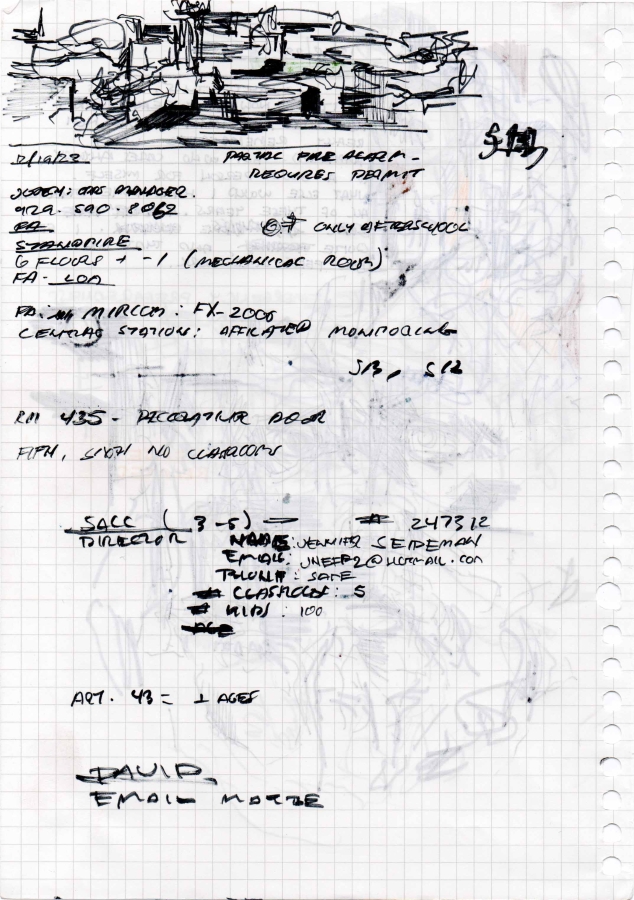 12/19/23
PARTIAL FIRE ALARM -
REQUIRES PERMIT
JOSEPH: OPS MANAGER.
929. 590. 8062
FA
ONLY AFTERSCHOOL
STANDPIPE
6 FLOORS + -1 (MECHANICAL ROOM)
FA - LOA
FA: MIRCOM: FX-2000
CENTRAL STATION: AFFILIATED MONITORING
S13, S12
RM 435 - DECORATIVE DOOR
FIFTH, SIXTH NO CLASSROOMS
SACC (3-5) - # 247312
DIRECTOR
NAME: JENNIFER SEIDEMAN
EMAIL: JNEFF2@HOTMAIL.COM
PHONE: SAME
# CLASSROOMS: 5
# KIDS: 100
AGE
ART. 43 = AGES
DAVID
EMAIL